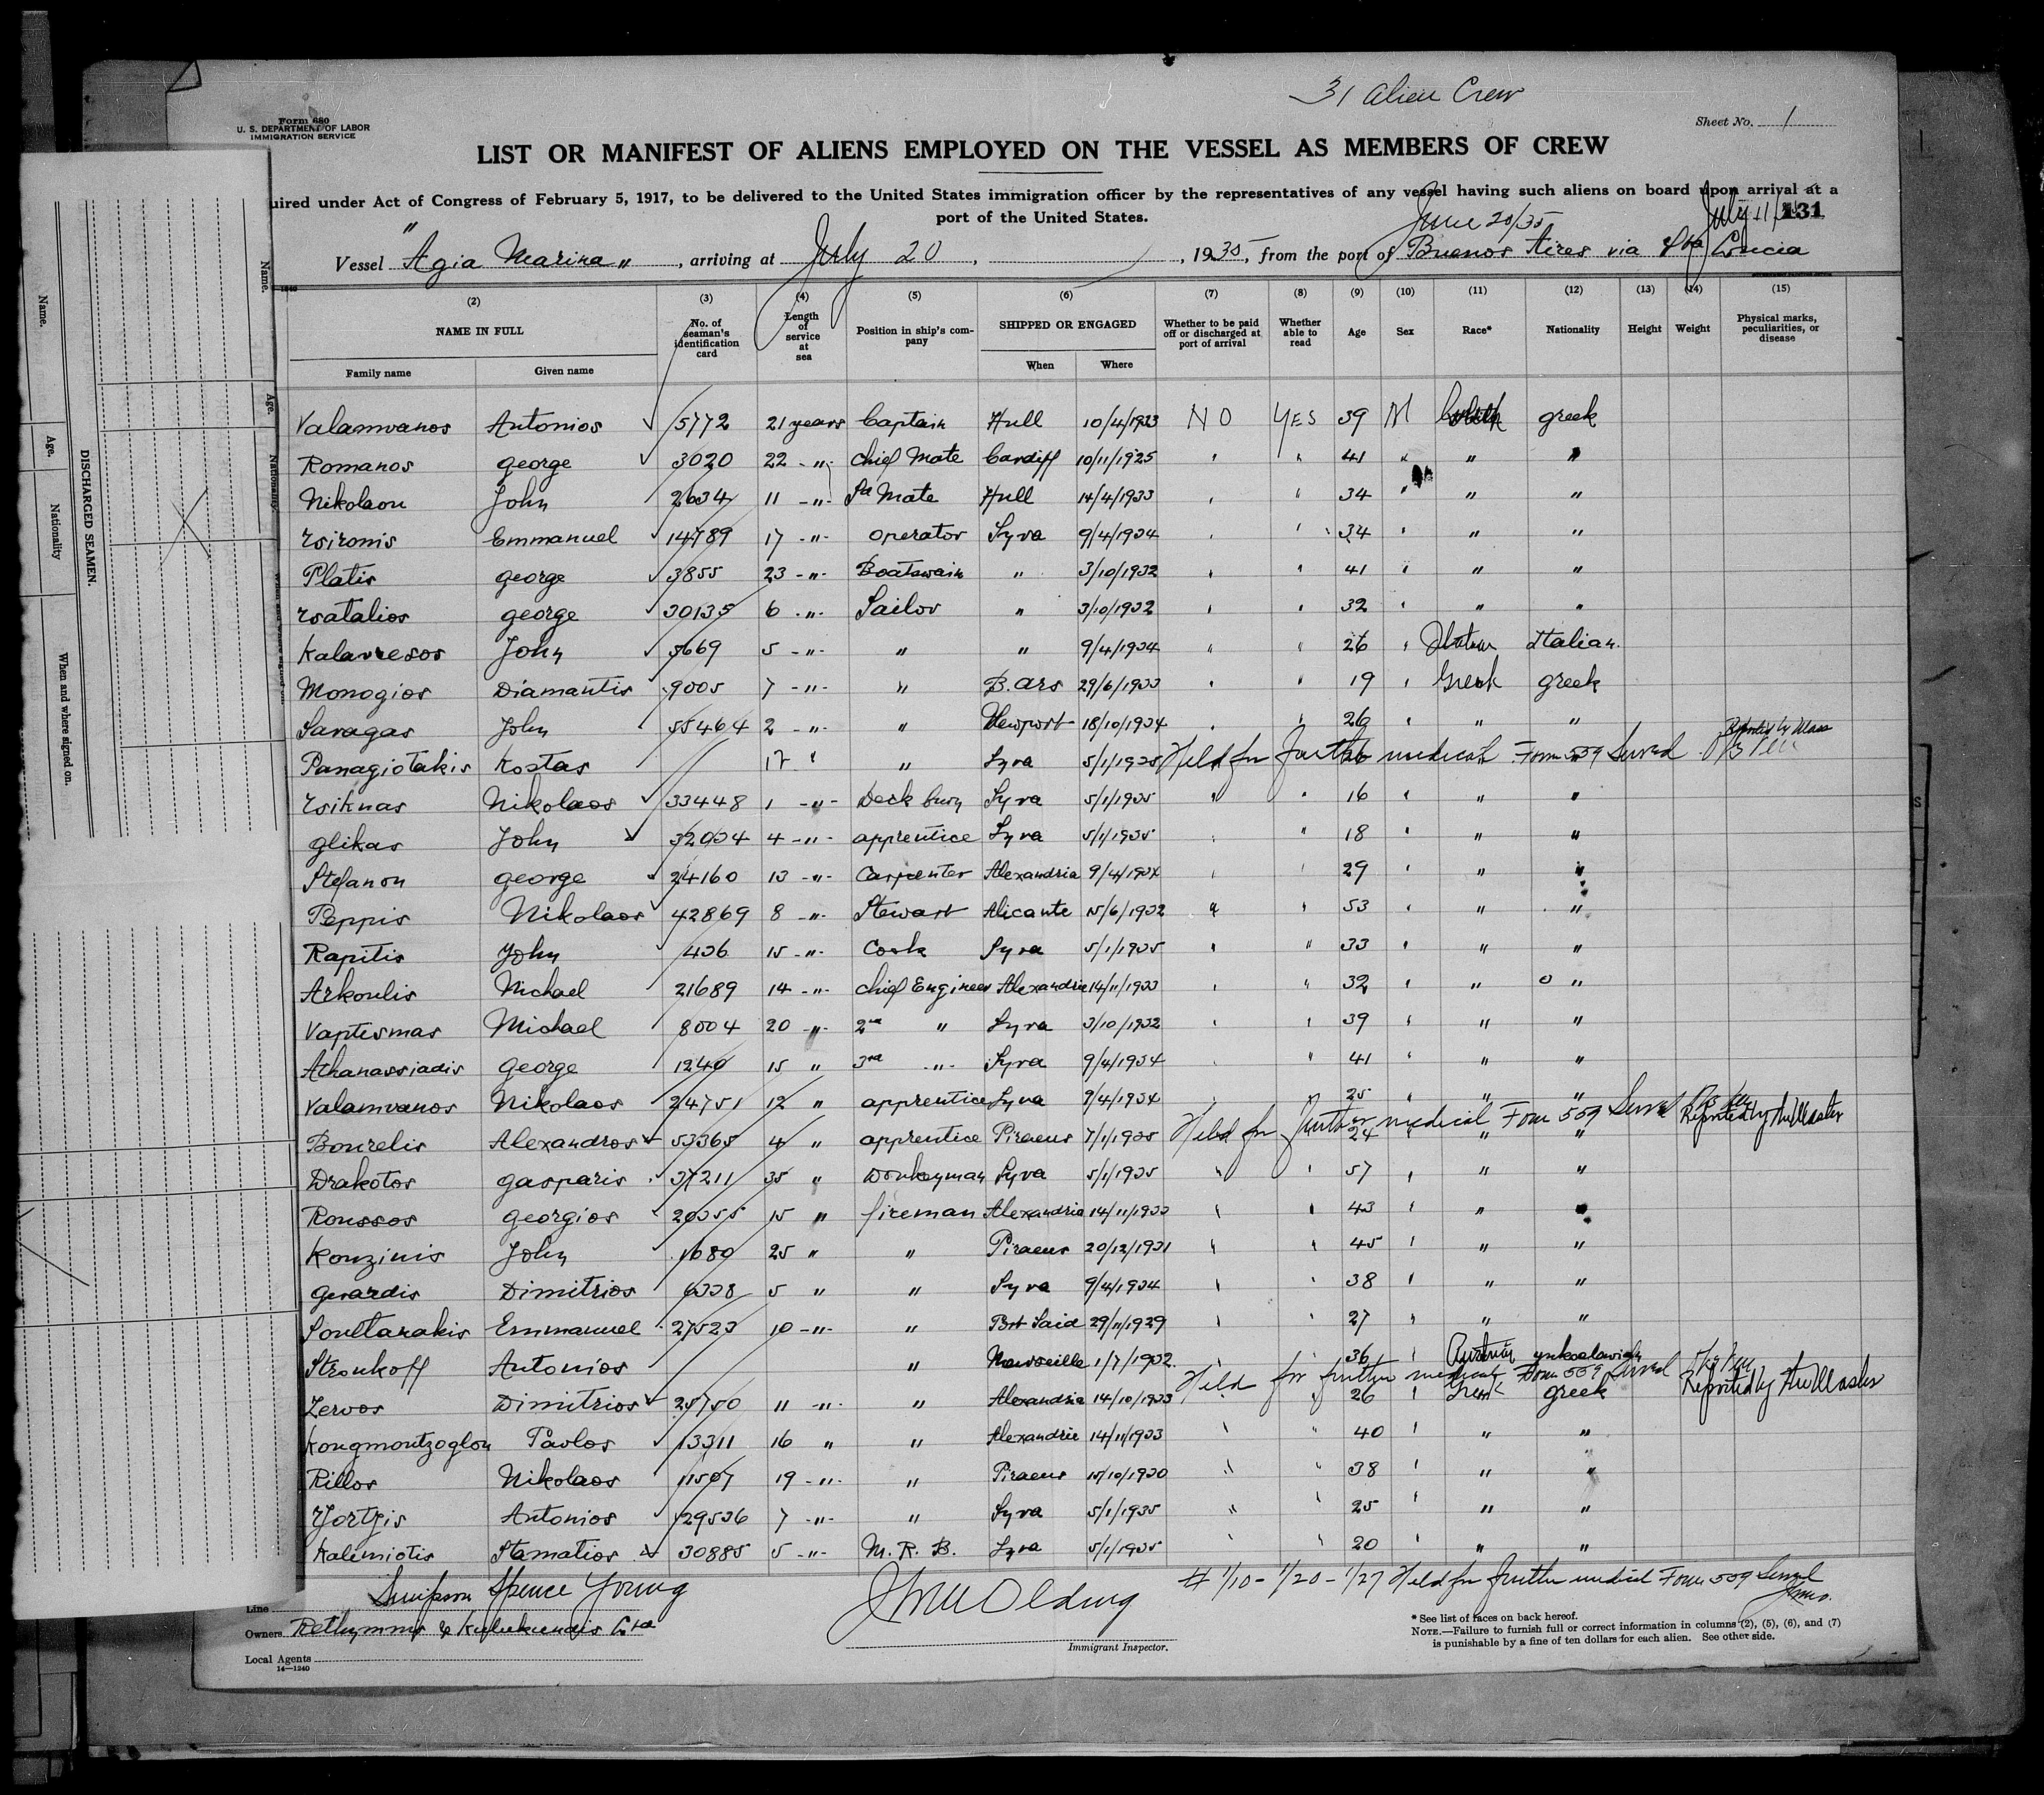 31 Alien Crew
Form 680
U. S. DEPARTMENT OF LABOR
IMMIGRATION SERVICE
Sheet No. 1
LIST OR MANIFEST OF ALIENS EMPLOYED ON THE VESSEL AS MEMBERS OF CREW
uired under Act of Congress of February 5, 1917, to be delivered to the United States immigration officer by the representatives of any vessel having such aliens on board upon arrival at a
port of the United States.
June 20/35 July 11/ 131
Vessel "Agia Marina", arriving at July 20, 1935, from the port of Buenos Aires via Sta Lucia
(2) (3) (4) (5) (6) (7) (8) (9) (10) (11) (12) (13) (14) (15)
NAME IN FULL No. of seaman's identification card Length of service at sea Position in ship's company SHIPPED OR ENGAGED Whether to be paid off or discharged at port of arrival Whether able to read Age Sex Race* Nationality Height Weight Physical marks, peculiarities, or disease
Family name Given name When Where
Valamvanos Antonios 5772 21 years Captain Hull 10/4/1933 NO YES 39 M Greek greek
Romanos george 3020 22 -"- Chief Mate Cardiff 10/11/1925 " " 41 " " "
Nikolaou John 2634 11 -"- Mate Hull 14/4/1933 " " 34 " " "
Tsironis Emmanuel 14789 17 -"- operator Syra 9/4/1934 " " 34 " " "
Platis george 3855 23 -"- Boatswain " 3/10/1932 " " 41 " " "
Tsatalios george 30135 6 -"- Sailor " 3/10/1932 " " 32 " " "
Kalavresos John 5669 5 -"- " " 9/4/1934 " " 26 " Italian Italian.
Monogios Diamantis 9005 7 -"- " B. Ars 29/6/1933 " " 19 " Greek greek
Savagas John 55464 2 -"- " Newport 18/10/1934 " " 26 " " "
Panagiotakis Kostas 12 " " Syra 5/1/1935 Held for further medical Form 559 Served
Tsiknas Nikolaos 33448 1 -"- Deck buoy Syra 5/1/1935 " " 16 " " "
glikas John 32034 4 -"- apprentice Syra 5/1/1935 " " 18 " " "
Stefanou george 24160 13 -"- Carpenter Alexandria 9/4/1934 " " 29 " " "
Peppis Nikolaos 42869 8 -"- Stewart Alicante 15/6/1932 " " 53 " " "
Rapitis John 436 15 -"- Cook Syra 5/1/1935 " " 33 " " "
Arkoulis Michael 21689 14 -"- chief Engineer Alexandria 14/11/1933 " " 32 " " "
Vaptismas Michael 8004 20 -"- 2nd " Syra 3/10/1932 " " 39 " " "
Athanassiadis George 1240 15 " 3rd -"- Syra 9/4/1934 " " 41 " " "
Valamvanos Nikolaos 24751 12 " apprentice Syra 9/4/1934 " " 25 " " "
Held for further medical Form 559 Served Reported by the Master
Bourelis Alexandros 53365 4 " apprentice Piraeus 7/1/1935 24 " " "
Drakotos gasparis 37211 35 " Donkeyman Syra 5/1/1935 " " 57 " " "
Roussos georgios 20355 15 " fireman Alexandria 14/11/1933 " " 43 " " "
Kouzinis John 1680 25 " " Piraeus 20/12/1931 " " 45 " " "
Gerardis Dimitrios 6338 5 " " Syra 9/4/1934 " " 38 " " "
Soultanakis Emmanuel 27523 10 -"- " Port Said 29/11/1929 " " 27 " " "
Stroukoff Antonios " Marseille 1/7/1932 " " 36 "
Held for further medical Form 559 Served Reported by the Master
Zervos Dimitrios 25750 11 -"- " Alexandria 14/10/1933 " " 26 " Greek greek
Kougmoutzoglou Pavlos 13311 16 " " Alexandria 14/11/1933 " " 40 " " "
Rillos Nikolaos 11507 19 -"- " Piraeus 15/10/1930 " " 38 " " "
Yortzis Antonios 29536 7 -"- " Syra 5/1/1935 " " 25 " " "
Kalimiotis Stamatios 30885 5 -"- M. R. B. Syra 5/1/1935 " " 20 " " "
# 1/10 - 1/20 - 1/27 Held for further medical Form 559 Served
Line Simpson Spence Young
Owners
Local Agents
14—1240
Immigrant Inspector.
* See list of races on back hereof.
NOTE.—Failure to furnish full or correct information in columns (2), (5), (6), and (7)
is punishable by a fine of ten dollars for each alien. See other side.
Name.
Age.
Nationality
DISCHARGED SEAMEN.
When and where signed on.
Name.
Age.
Nationality